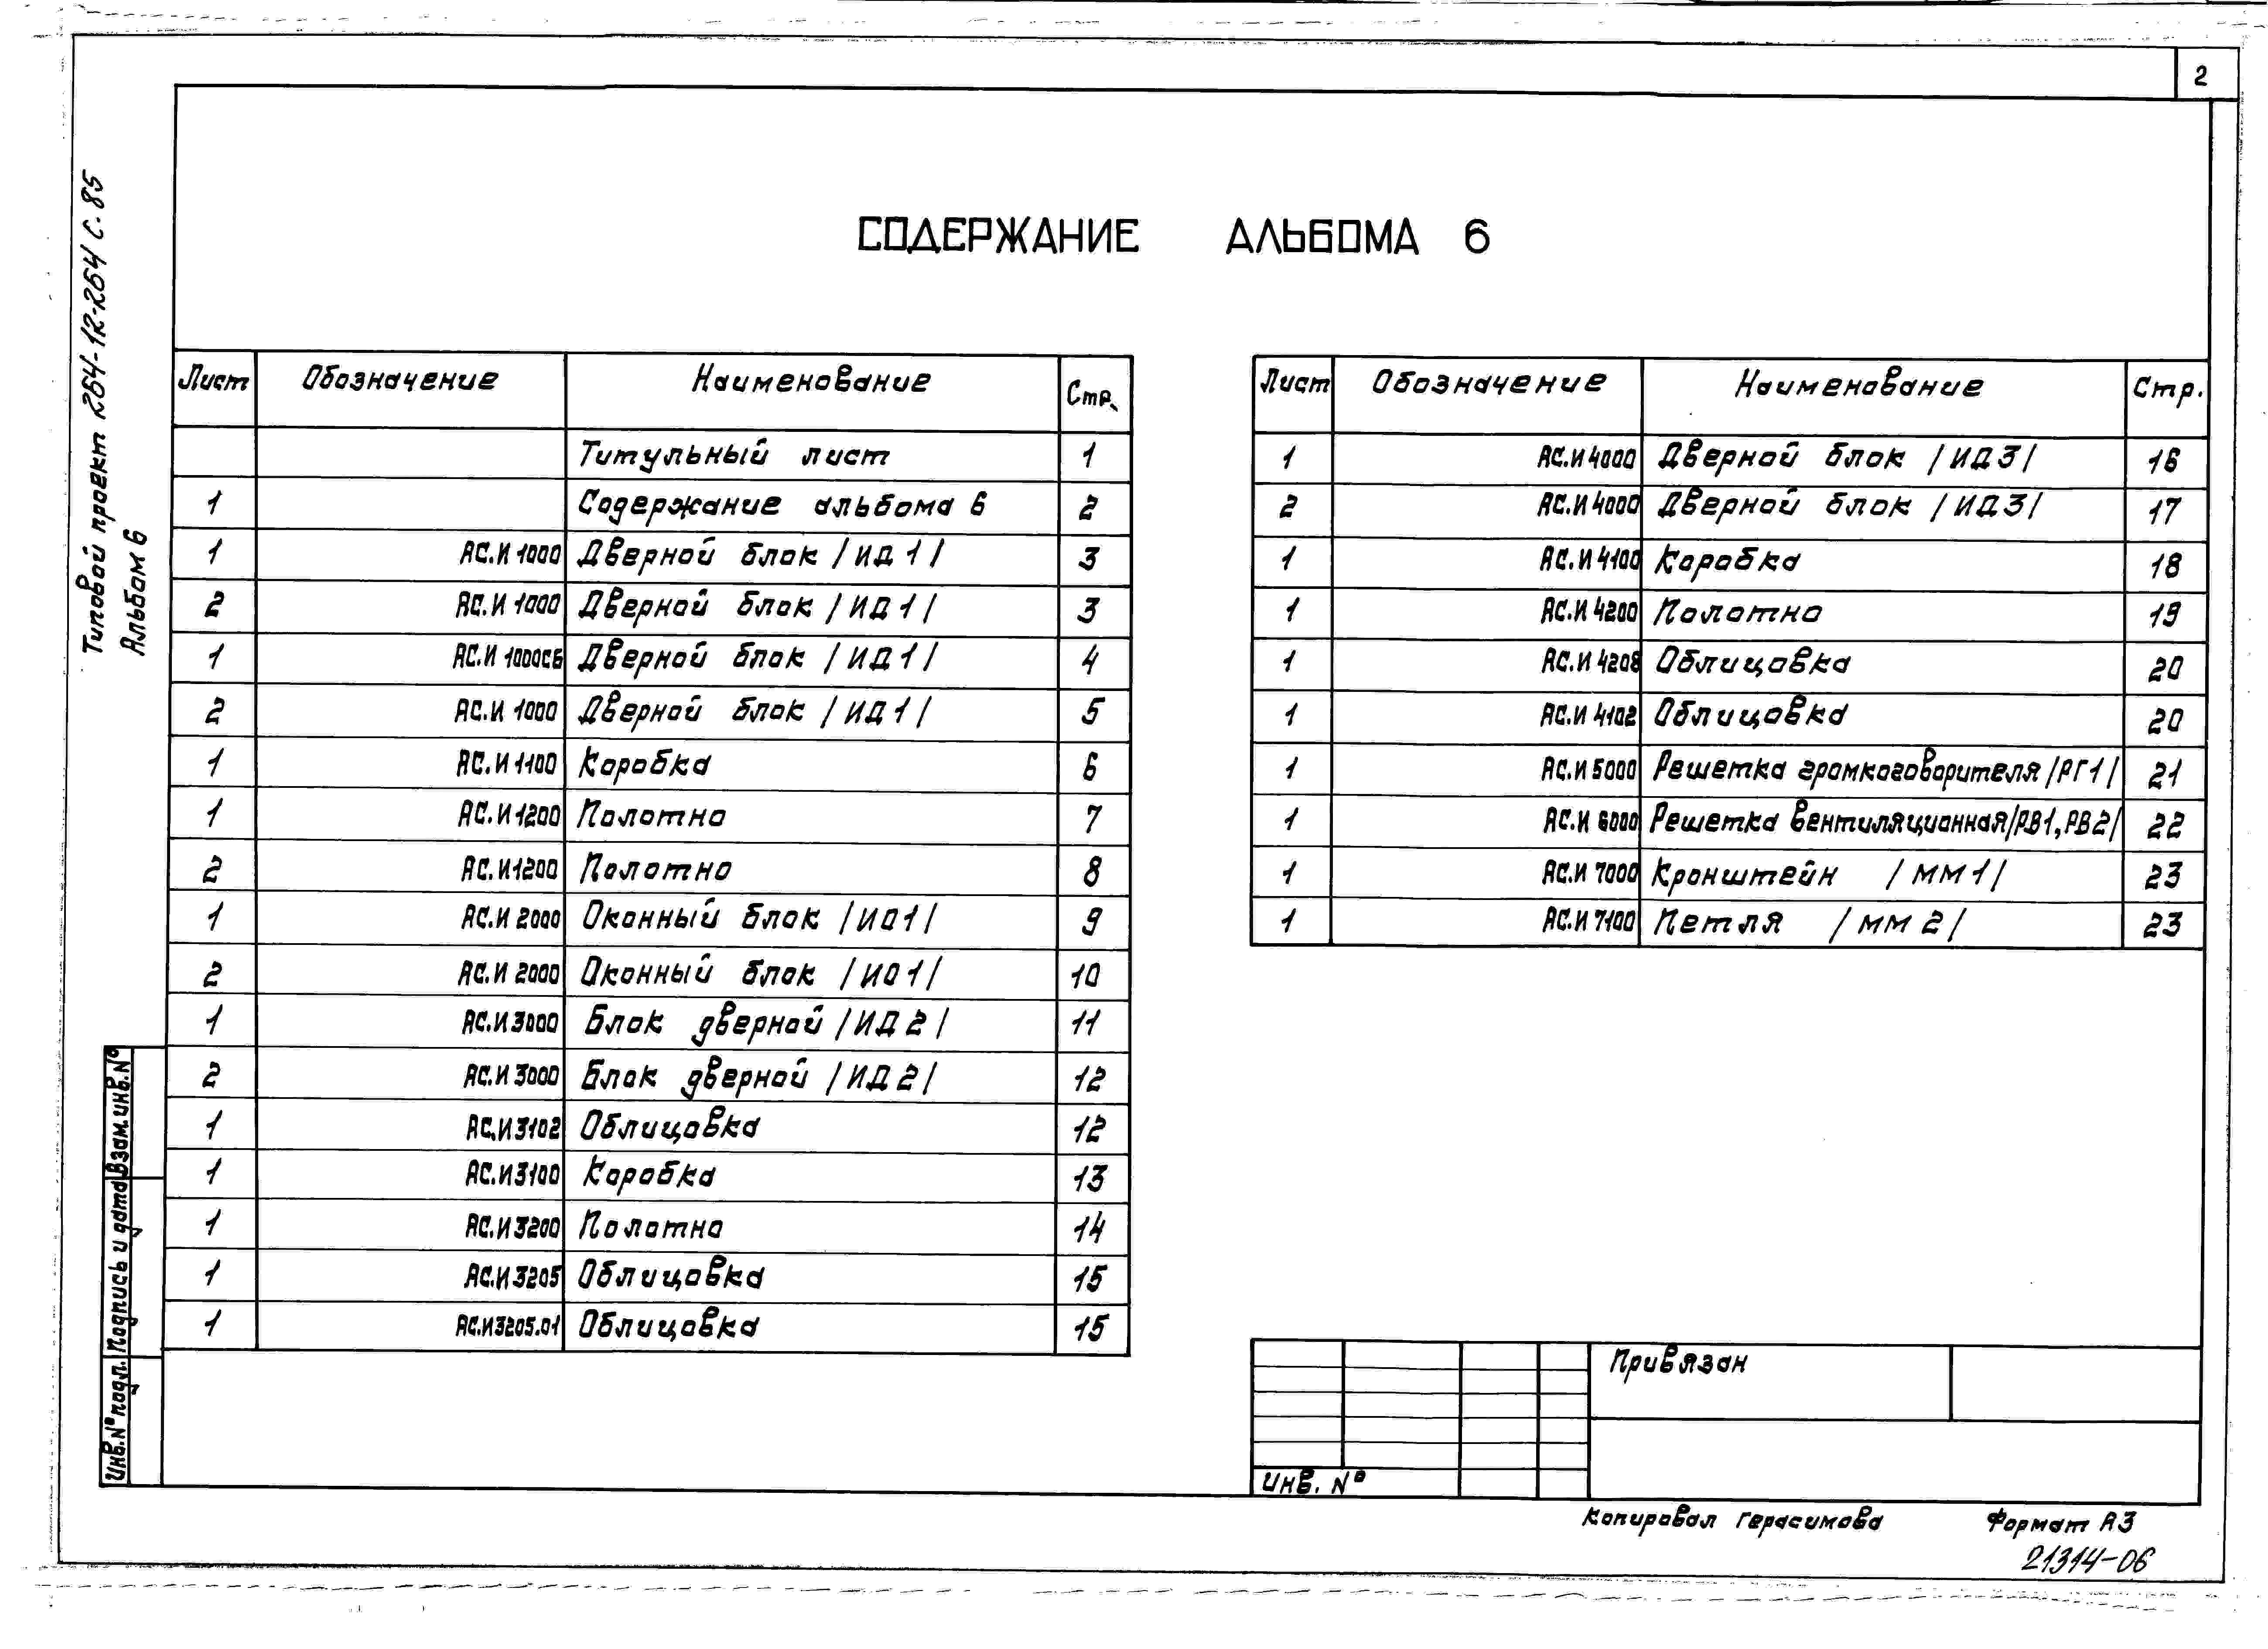 2
Типовой проект 264-12-264 с.85
Альбом 6
СОДЕРЖАНИЕ АЛЬБОМА 6
Лист Обозначение Наименование Стр.
Титульный лист 1
1 Содержание альбома 6 2
1 АС.И 1000 Дверной блок /ИД1/ 3
2 АС.И 1000 Дверной блок /ИД1/ 3
1 АС.И 1000СБ Дверной блок /ИД1/ 4
2 АС.И 1000 Дверной блок /ИД1/ 5
1 АС.И 1100 Коробка 6
1 АС.И 1200 Полотно 7
2 АС.И 1200 Полотно 8
1 АС.И 2000 Оконный блок /ИО1/ 9
2 АС.И 2000 Оконный блок /ИО1/ 10
1 АС.И 3000 Блок дверной /ИД2/ 11
2 АС.И 3000 Блок дверной /ИД2/ 12
1 АС.И 3102 Облицовка 12
1 АС.И 3100 Коробка 13
1 АС.И 3200 Полотно 14
1 АС.И 3205 Облицовка 15
1 АС.И 3205.01 Облицовка 15
Лист Обозначение Наименование Стр.
1 АС.И 4000 Дверной блок /ИД3/ 16
2 АС.И 4000 Дверной блок /ИД3/ 17
1 АС.И 4100 Коробка 18
1 АС.И 4200 Полотно 19
1 АС.И 4208 Облицовка 20
1 АС.И 4102 Облицовка 20
1 АС.И 5000 Решетка громкоговорителя /РГ1/ 21
1 АС.И 6000 Решетка вентиляционная /РВ1, РВ2/ 22
1 АС.И 7000 Кронштейн /ММ1/ 23
1 АС.И 7100 Петля /ММ2/ 23
Взам. инв. №
Подпись и дата
Инв. № подл.
Привязан
Инв. №
Копировал Герасимова Формат А3
21314-06